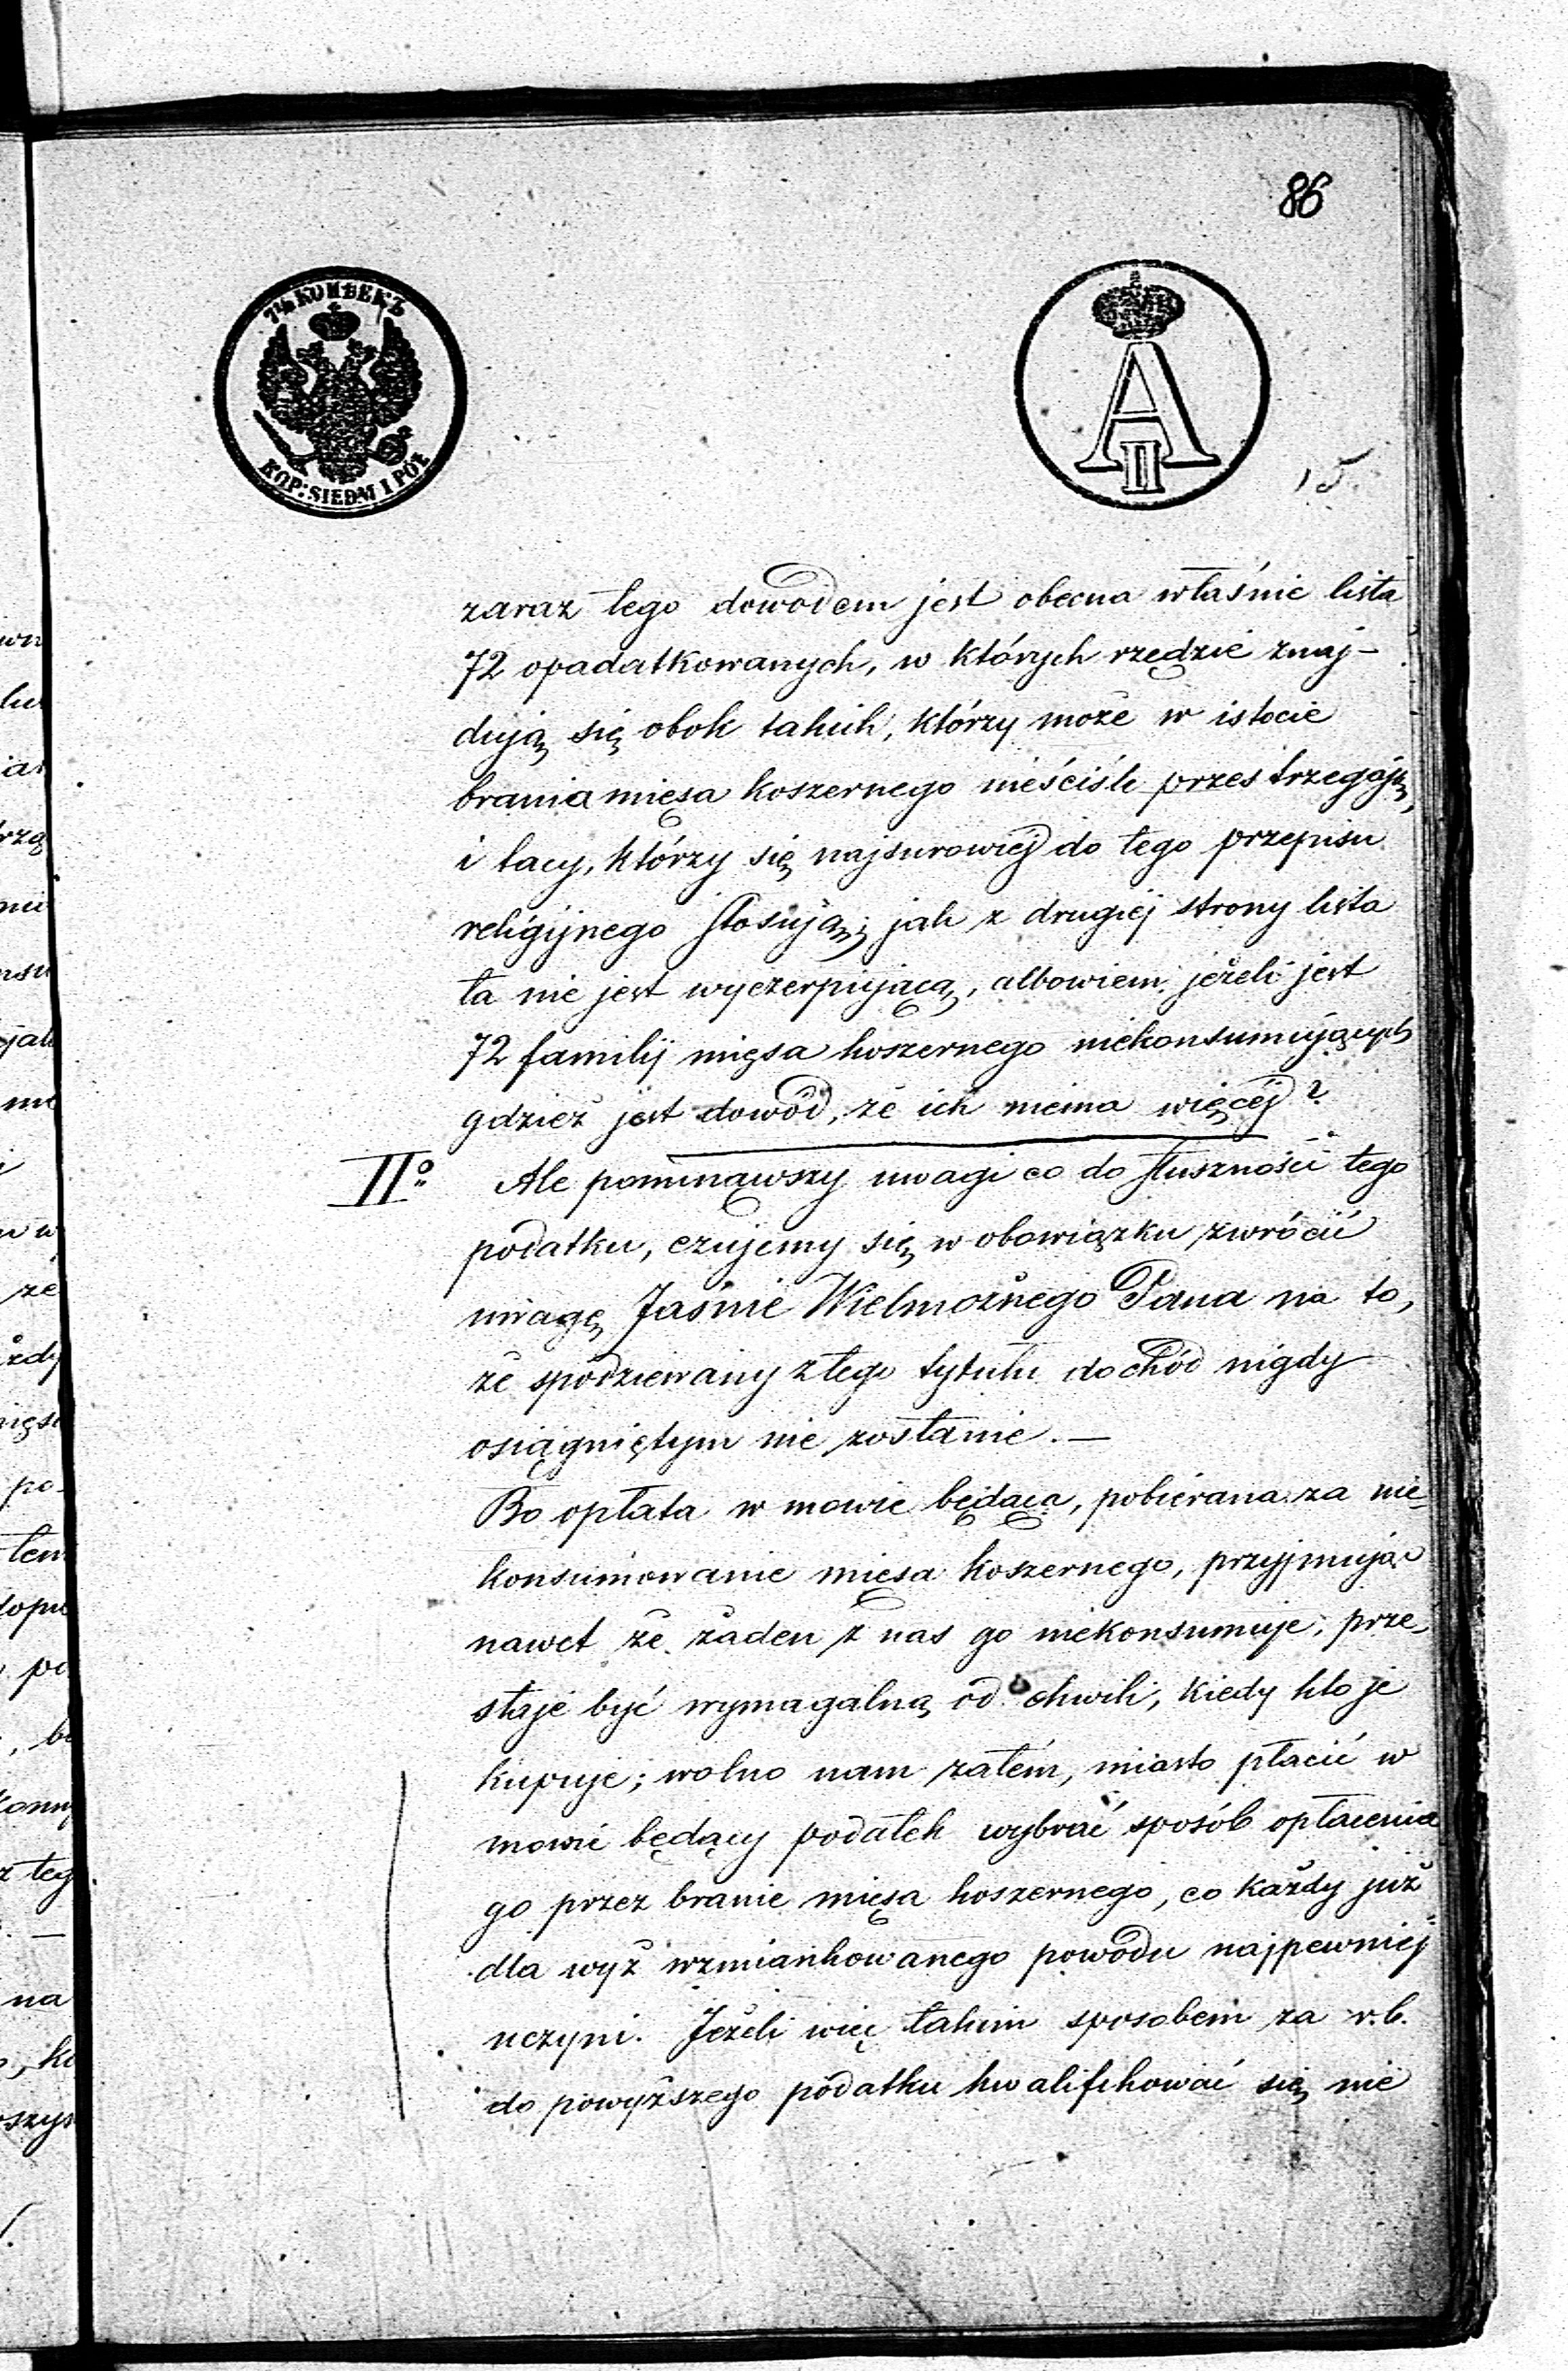 86
7½ КОПѢЕКЪ
KOP: SIEDM I PÓŁ
A II
15
zaraz tego dowodem jest obecna właśnie lista
72 opadatkowanych, w których rzędzie znaj-
dują się obok takich, którzy może w istocie
brania mięsa koszernego nieściśle przestrzegają,
i tacy, którzy się najsurowiéj do tego przepisu
religijnego stosują; jak z drugiéj strony lista
ta nie jest wyczerpującą, albowiem jeżeli jest
72 familij mięsa koszernego niekonsumujących
gdzież jest dowód, że ich niema więcéj?
IIo Ale pominąwszy uwagi co do słuszności tego
podatku, czujemy się w obowiązku zwrócić
uwagę Jaśnie Wielmożnego Pana na to,
że spodziewany z tego tytułu dochód nigdy
osiągniętym nie zostanie. —
Bo opłata w mowie będąca, pobierana za nie-
konsumowanie mięsa koszernego, przyjmując
nawet że żaden z nas go niekonsumuje, prze-
staje być wymagalną od chwili, kiedy kto je
kupuje; wolno nam zatém, miasto płacić w
mowie będący podatek wybrać sposób opłacenia
go przez branie mięsa koszernego, co każdy już
dla wyż wzmiankowanego powodu najpewniéj
uczyni. Jeżeli więc takim sposobem za r.b.
do powyższego podatku kwalifikować się nie